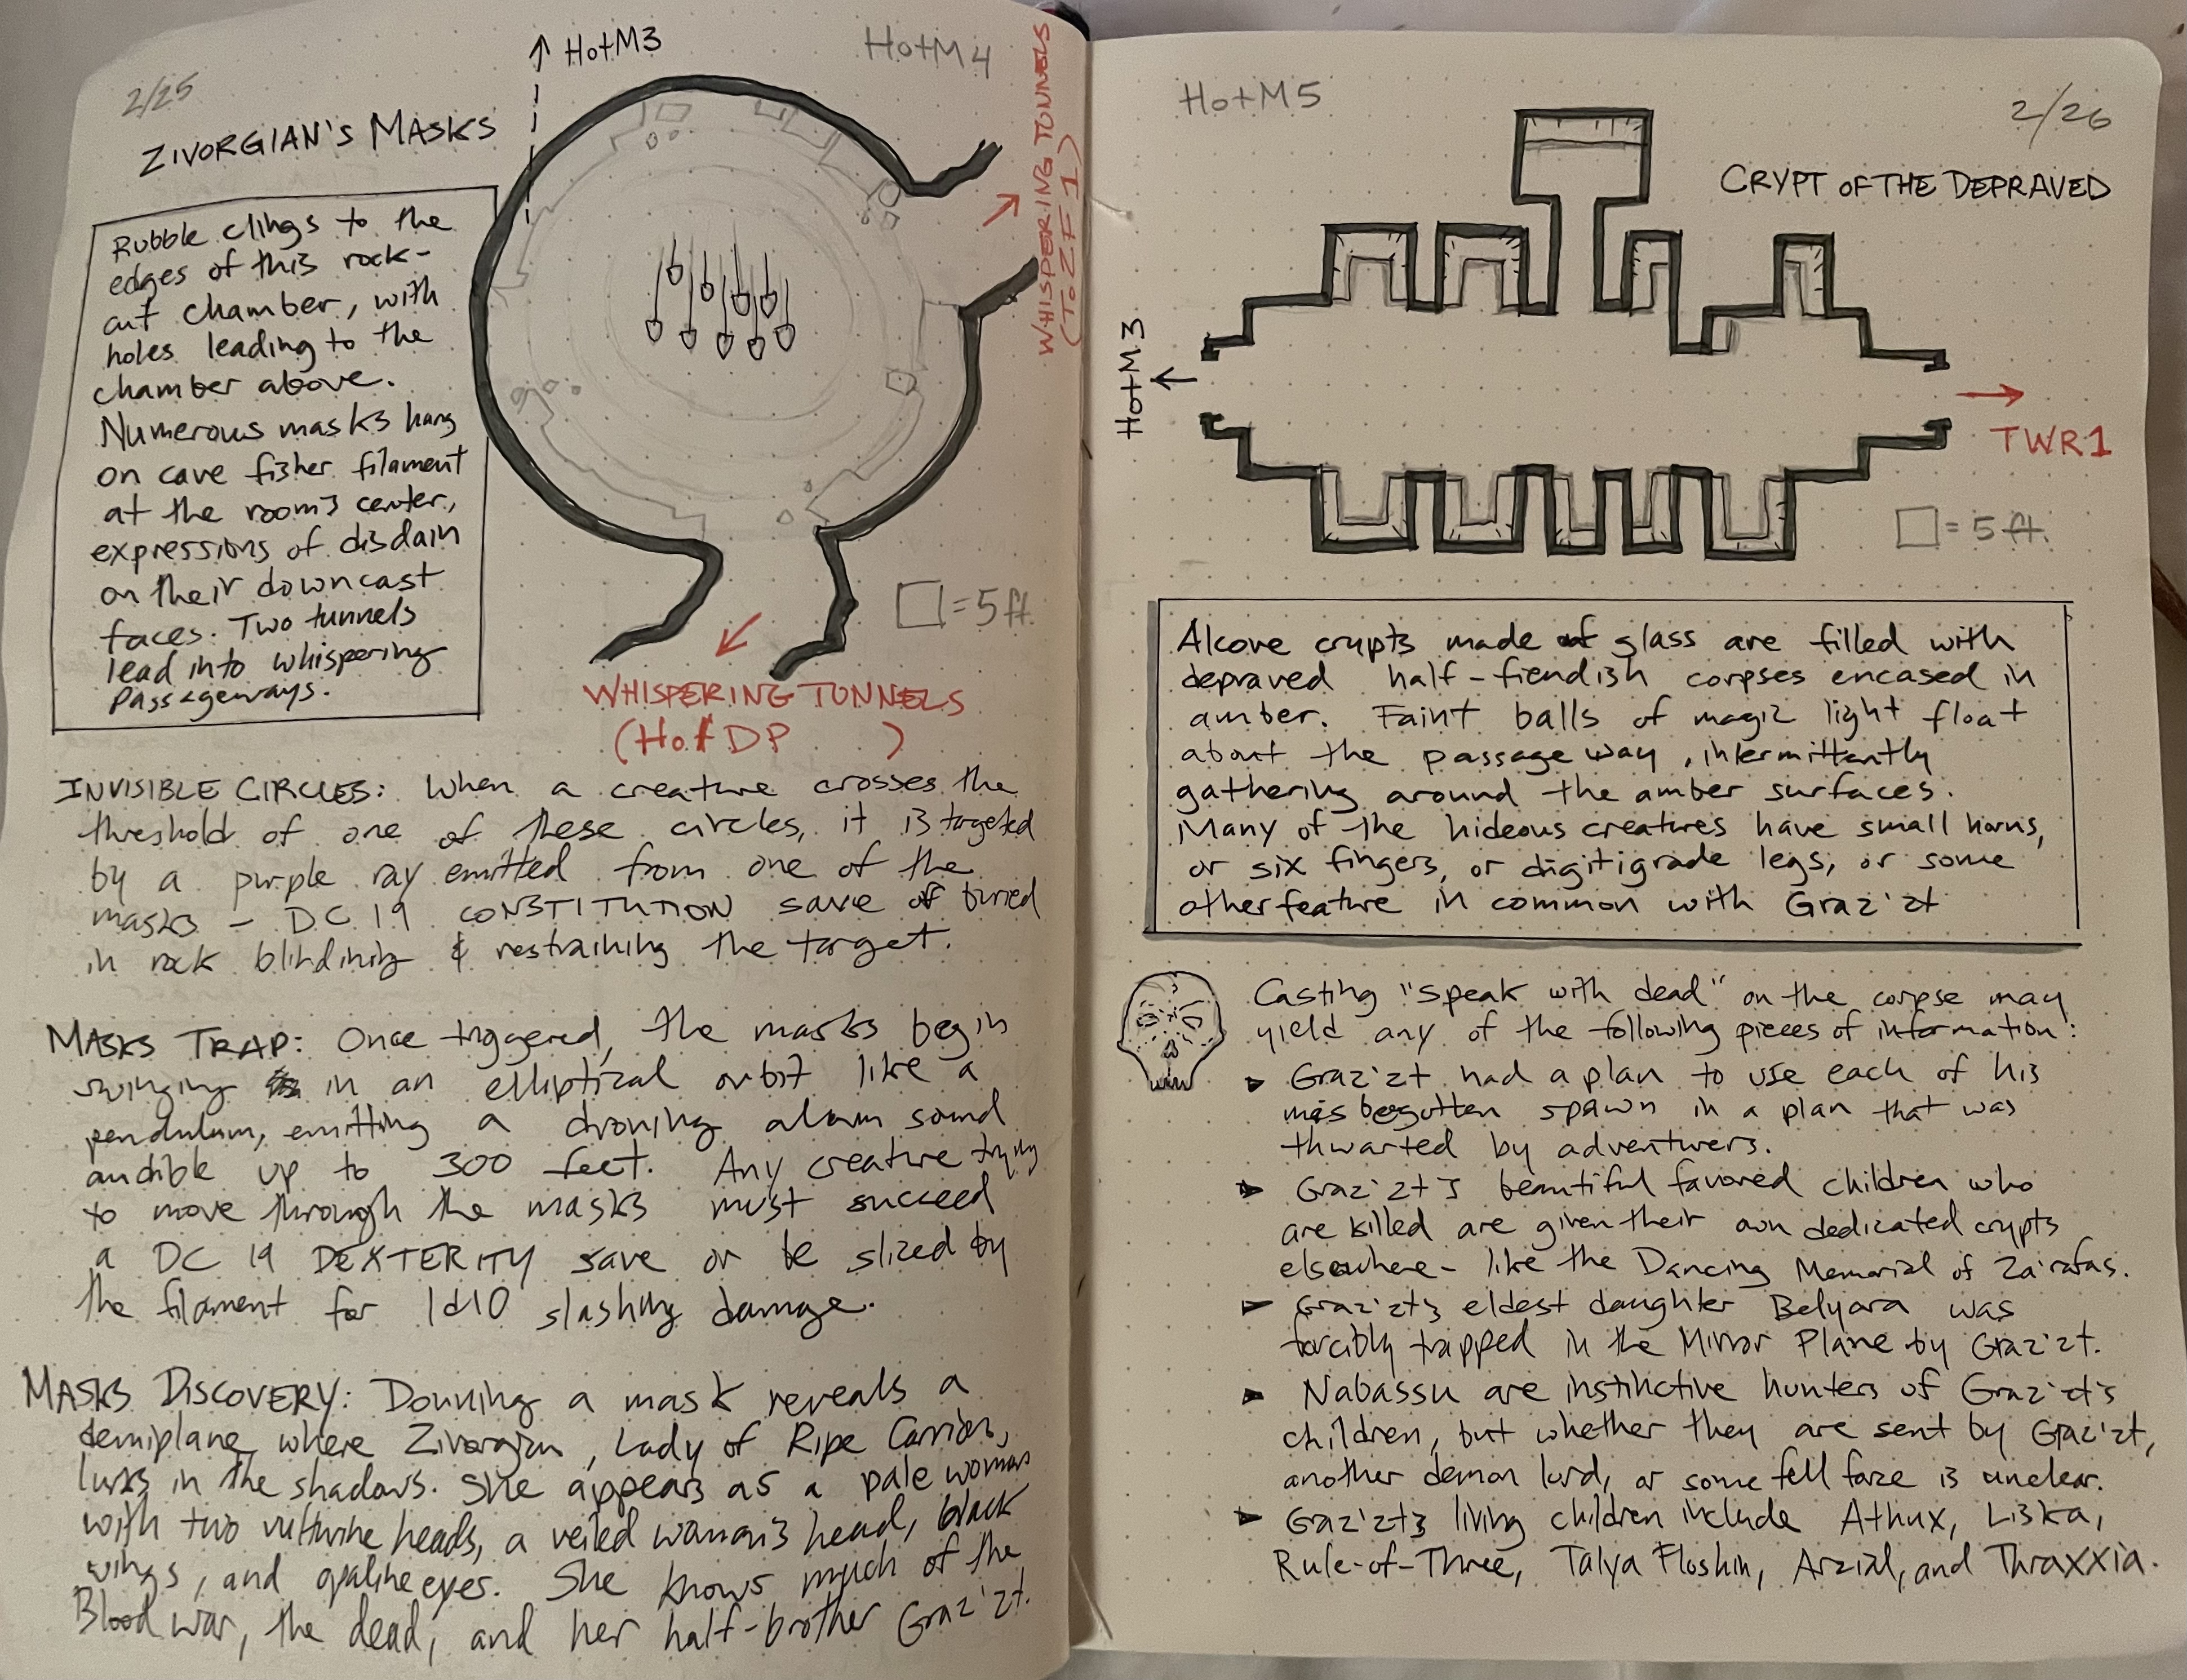 2/25
ZIVORGIAN'S MASKS
HotM3
HotM4
WHISPERING TUNNELS
(To ZF1)
Rubble clings to the
edges of this rock-
cut chamber, with
holes leading to the
chamber above.
Numerous masks hang
on cave fisher filament
at the room's center,
expressions of disdain
on their downcast
faces. Two tunnels
lead into whispering
passageways.
□ = 5 ft.
WHISPERING TUNNELS
(HotDP )
INVISIBLE CIRCLES: When a creature crosses the
threshold of one of these circles, it is targeted
by a purple ray emitted from one of the
masks – DC 19 CONSTITUTION save of buried
in rock blinding & restraining the target.
MASKS TRAP: Once triggered, the masks begin
swinging in an elliptical orbit like a
pendulum, emitting a droning alarm sound
audible up to 300 feet. Any creature trying
to move through the masks must succeed
a DC 19 DEXTERITY save or be sliced by
the filament for 1d10 slashing damage.
MASKS DISCOVERY: Donning a mask reveals a
demiplane where Zivorgian, Lady of Ripe Carrion,
lurks in the shadows. She appears as a pale woman
with two vulturine heads, a veiled woman's head, black
wings, and opaline eyes. She knows much of the
Blood war, the dead, and her half-brother Graz'zt.
HotM5
2/26
CRYPT OF THE DEPRAVED
HotM3
TWR1
□ = 5 ft.
Alcove crypts made of glass are filled with
depraved half-fiendish corpses encased in
amber. Faint balls of magic light float
about the passage way, intermittently
gathering around the amber surfaces.
Many of the hideous creatures have small horns,
or six fingers, or digitigrade legs, or some
other feature in common with Graz'zt
Casting "speak with dead" on the corpse may
yield any of the following pieces of information:
► Graz'zt had a plan to use each of his
misbegotten spawn in a plan that was
thwarted by adventurers.
► Graz'zt's beautiful favored children who
are killed are given their own dedicated crypts
elsewhere – like the Dancing Memorial of Za'rafas.
► Graz'zt's eldest daughter Belyara was
forcibly trapped in the Mirror Plane by Graz'zt.
► Nabassu are instinctive hunters of Graz'zt's
children, but whether they are sent by Graz'zt,
another demon lord, or some fell force is unclear.
► Graz'zt's living children include Athux, Liska,
Rule-of-Three, Talya Floshin, Arzial, and Thraxxia.